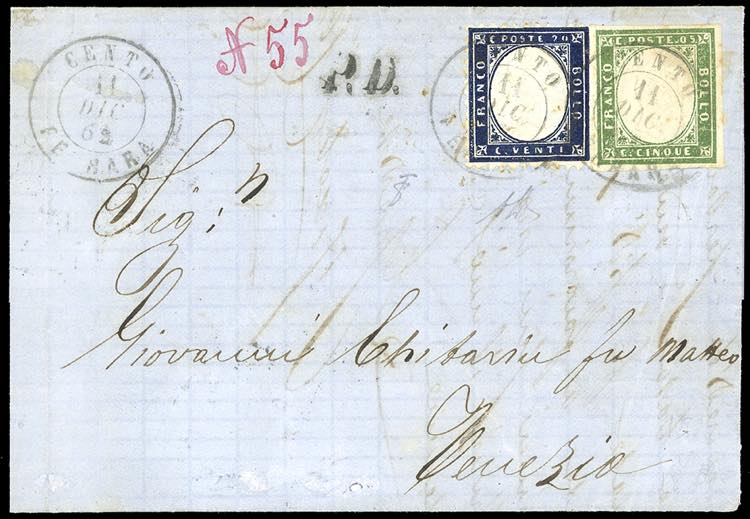 CENTO
11
DIC
62
FERRARA
N 55
P.D.
C. POSTE 20
FRANCO
BOLLO
C. VENTI
CENTO
11
DIC
C. POSTE.05
FRANCO
BOLLO
C. CINQUE
CENTO
11
DIC
Sig:r
Giovanni Chitarin fu Matteo
Venezia